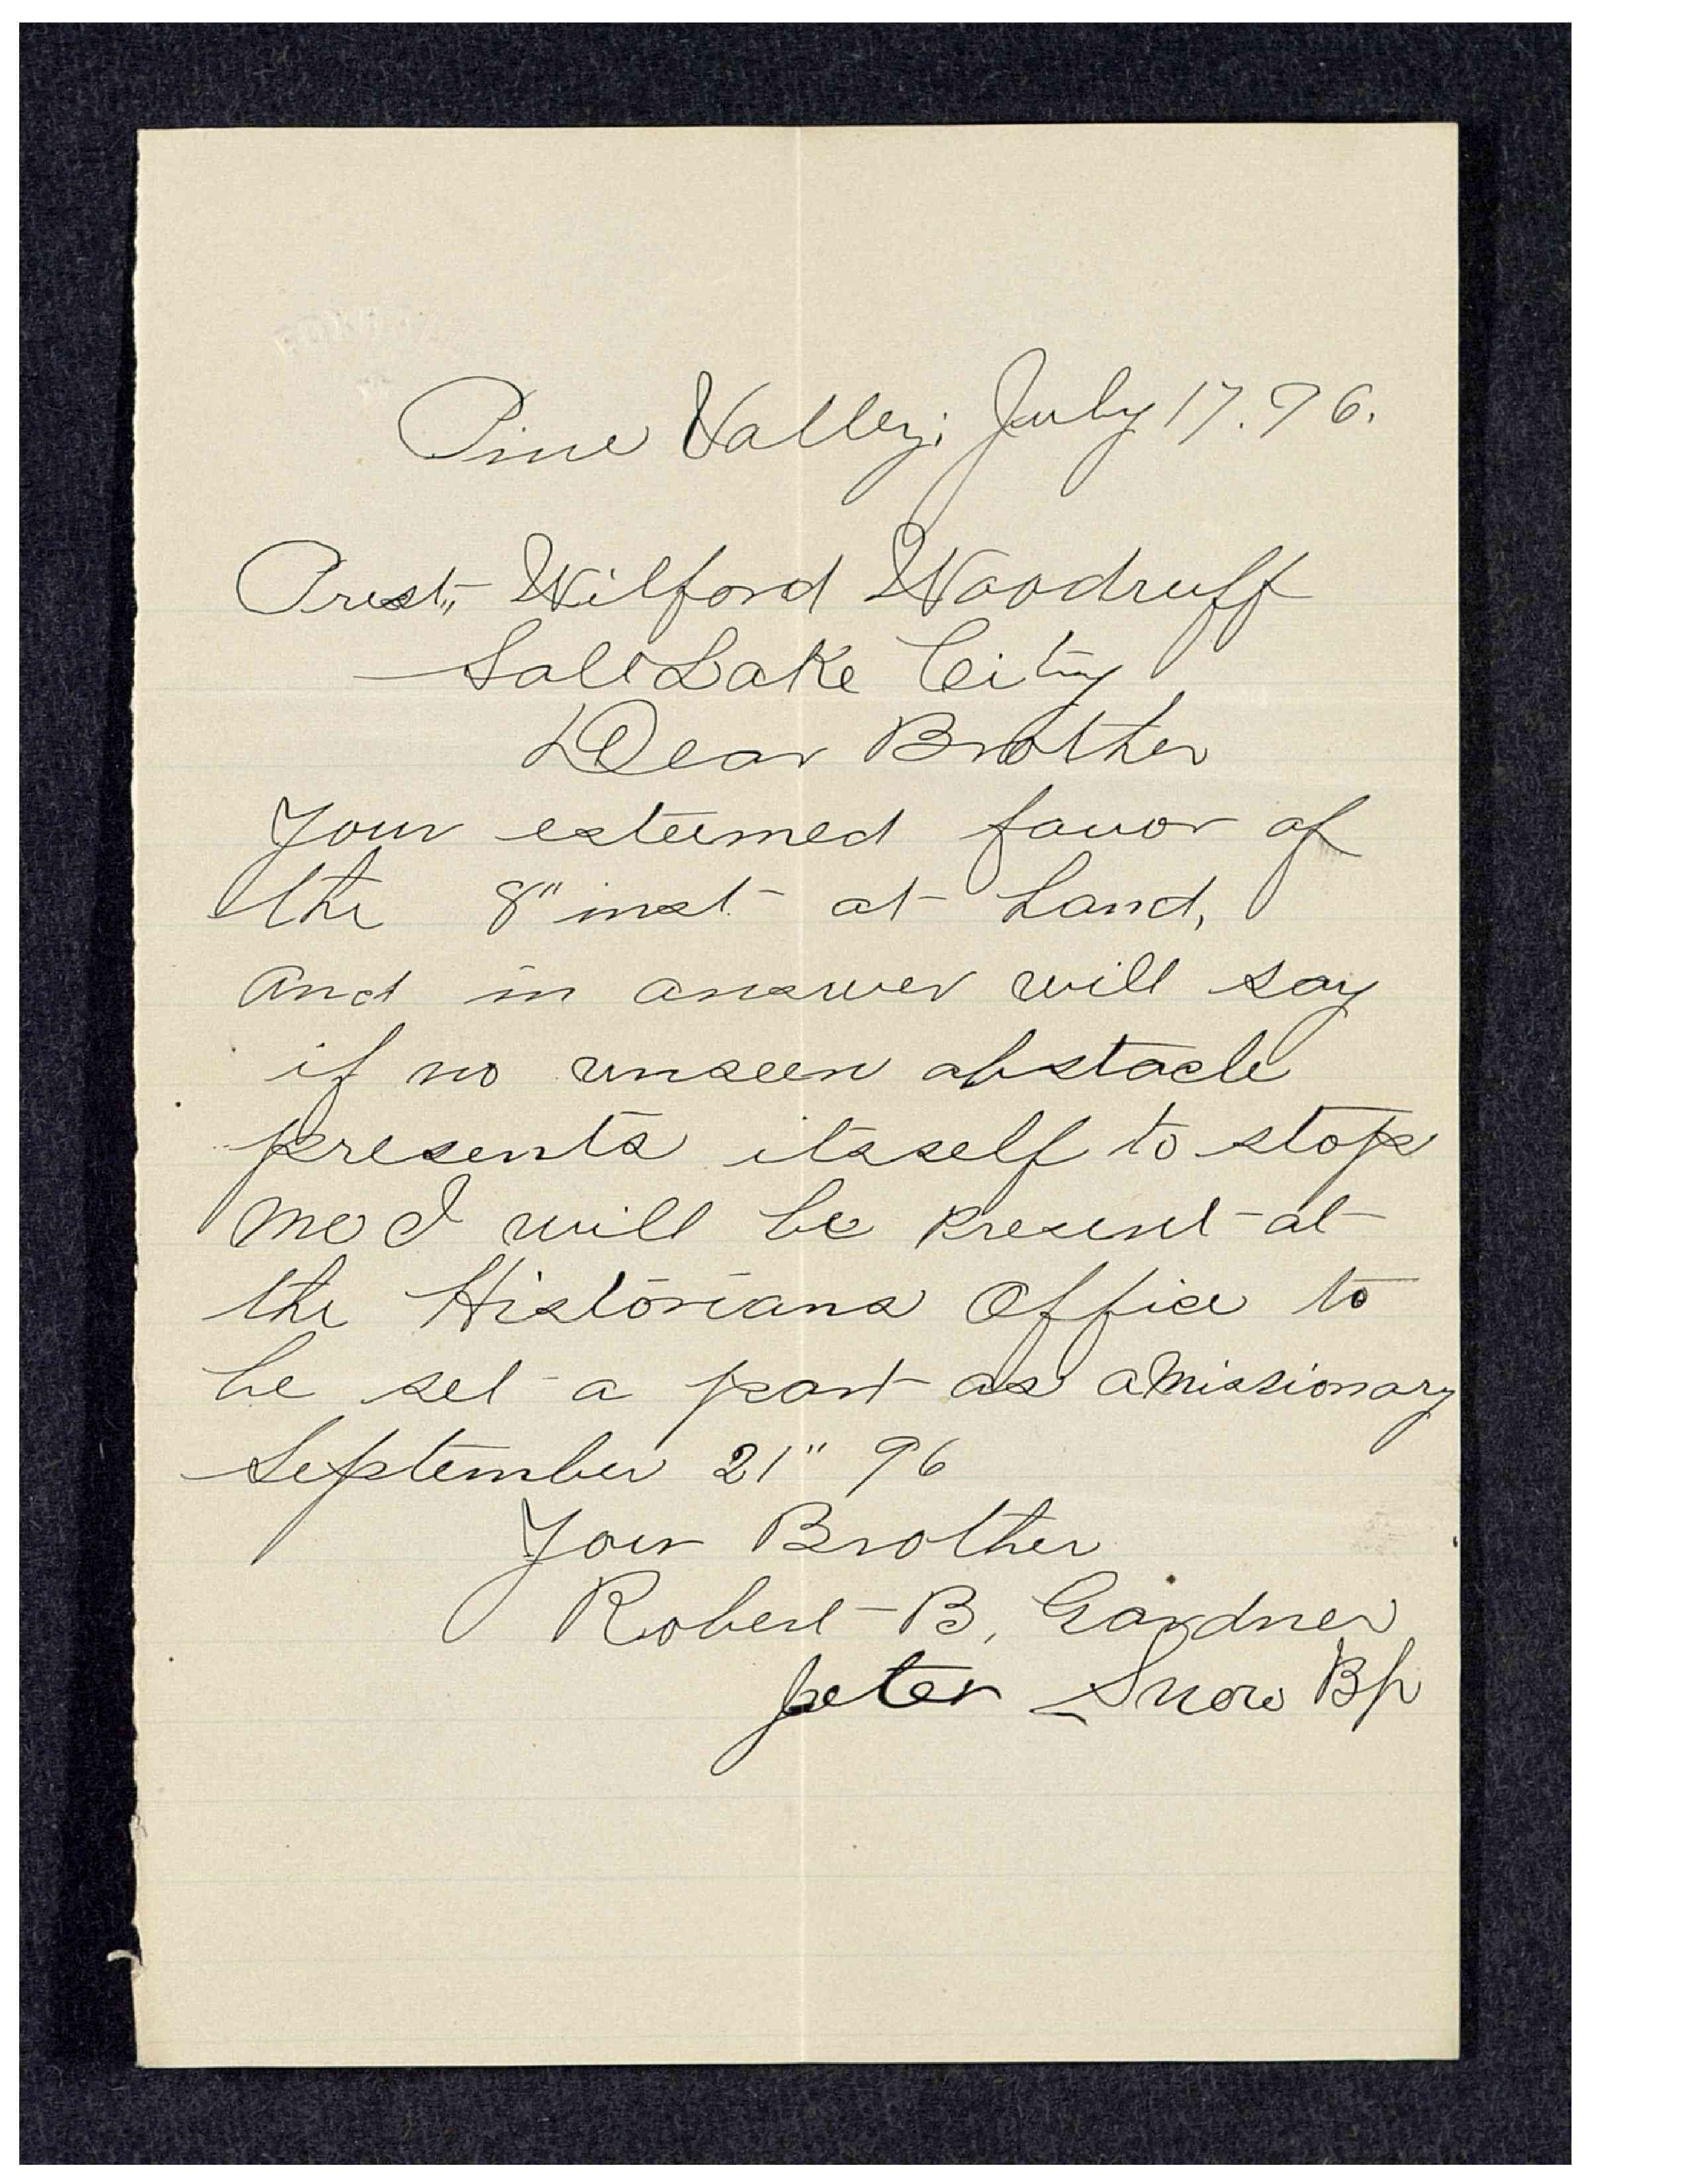 Pine Valley; July 17. 96.
Prest,, Wilford Woodruff
Salt Lake City
Dear Brother
Your esteemed favor of
the 8" inst at hand,
and in answer will say
if no unseen obstacle
presents itsself to stop
me I will be present at
the Historians Office to
be set a part as a Missionary
September 21" 96
Your Brother
Robert B. Gardner
peter Snow Bp